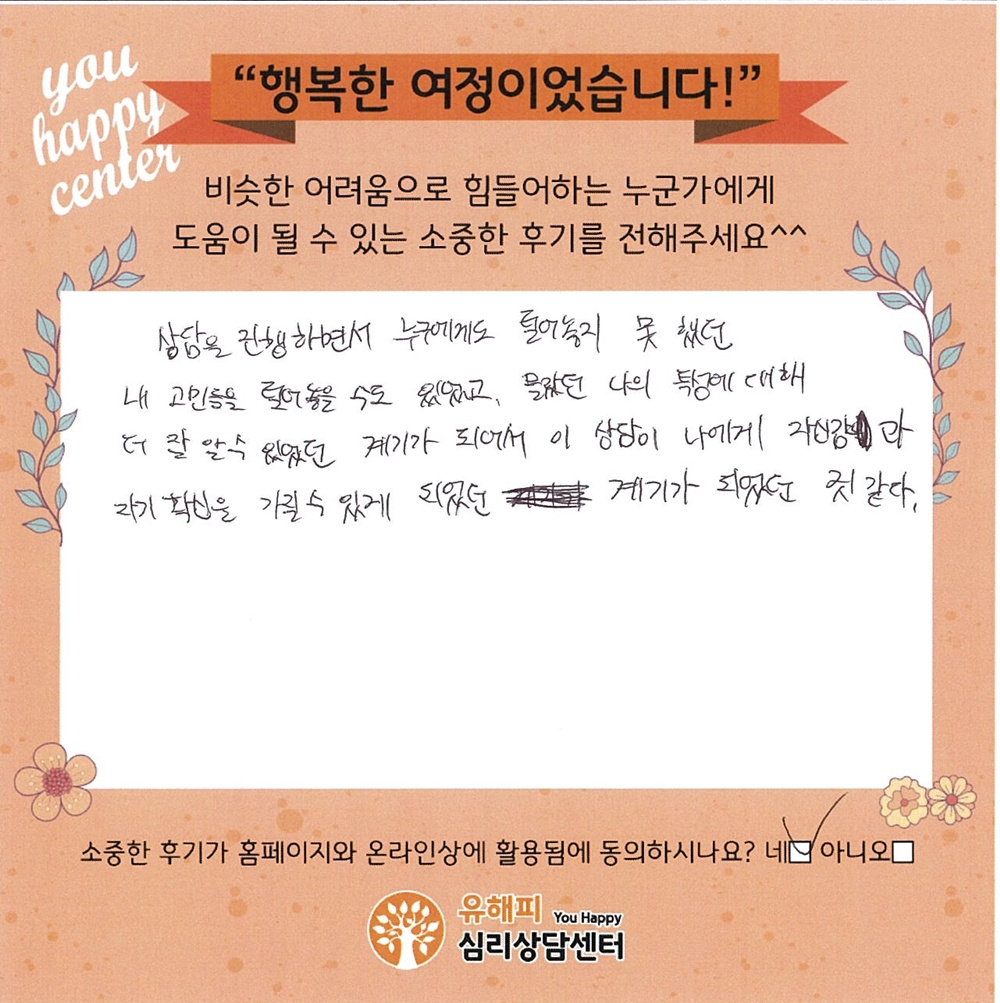 you
happy
center
“행복한 여정이었습니다!”
비슷한 어려움으로 힘들어하는 누군가에게
도움이 될 수 있는 소중한 후기를 전해주세요^^
상담을 진행하면서 누구에게도 털어놓지 못 했던
내 고민들을 털어놓을 수도 있었고, 몰랐던 나의 특성에 대해
더 잘 알 수 있었던 계기가 되어서 이 상담이 나에게 자신감과
자기 확신을 가질 수 있게 되었던 계기가 되었던 것 같다.
소중한 후기가 홈페이지와 온라인상에 활용됨에 동의하시나요? 네☑ 아니오☐
유해피 You Happy
심리상담센터